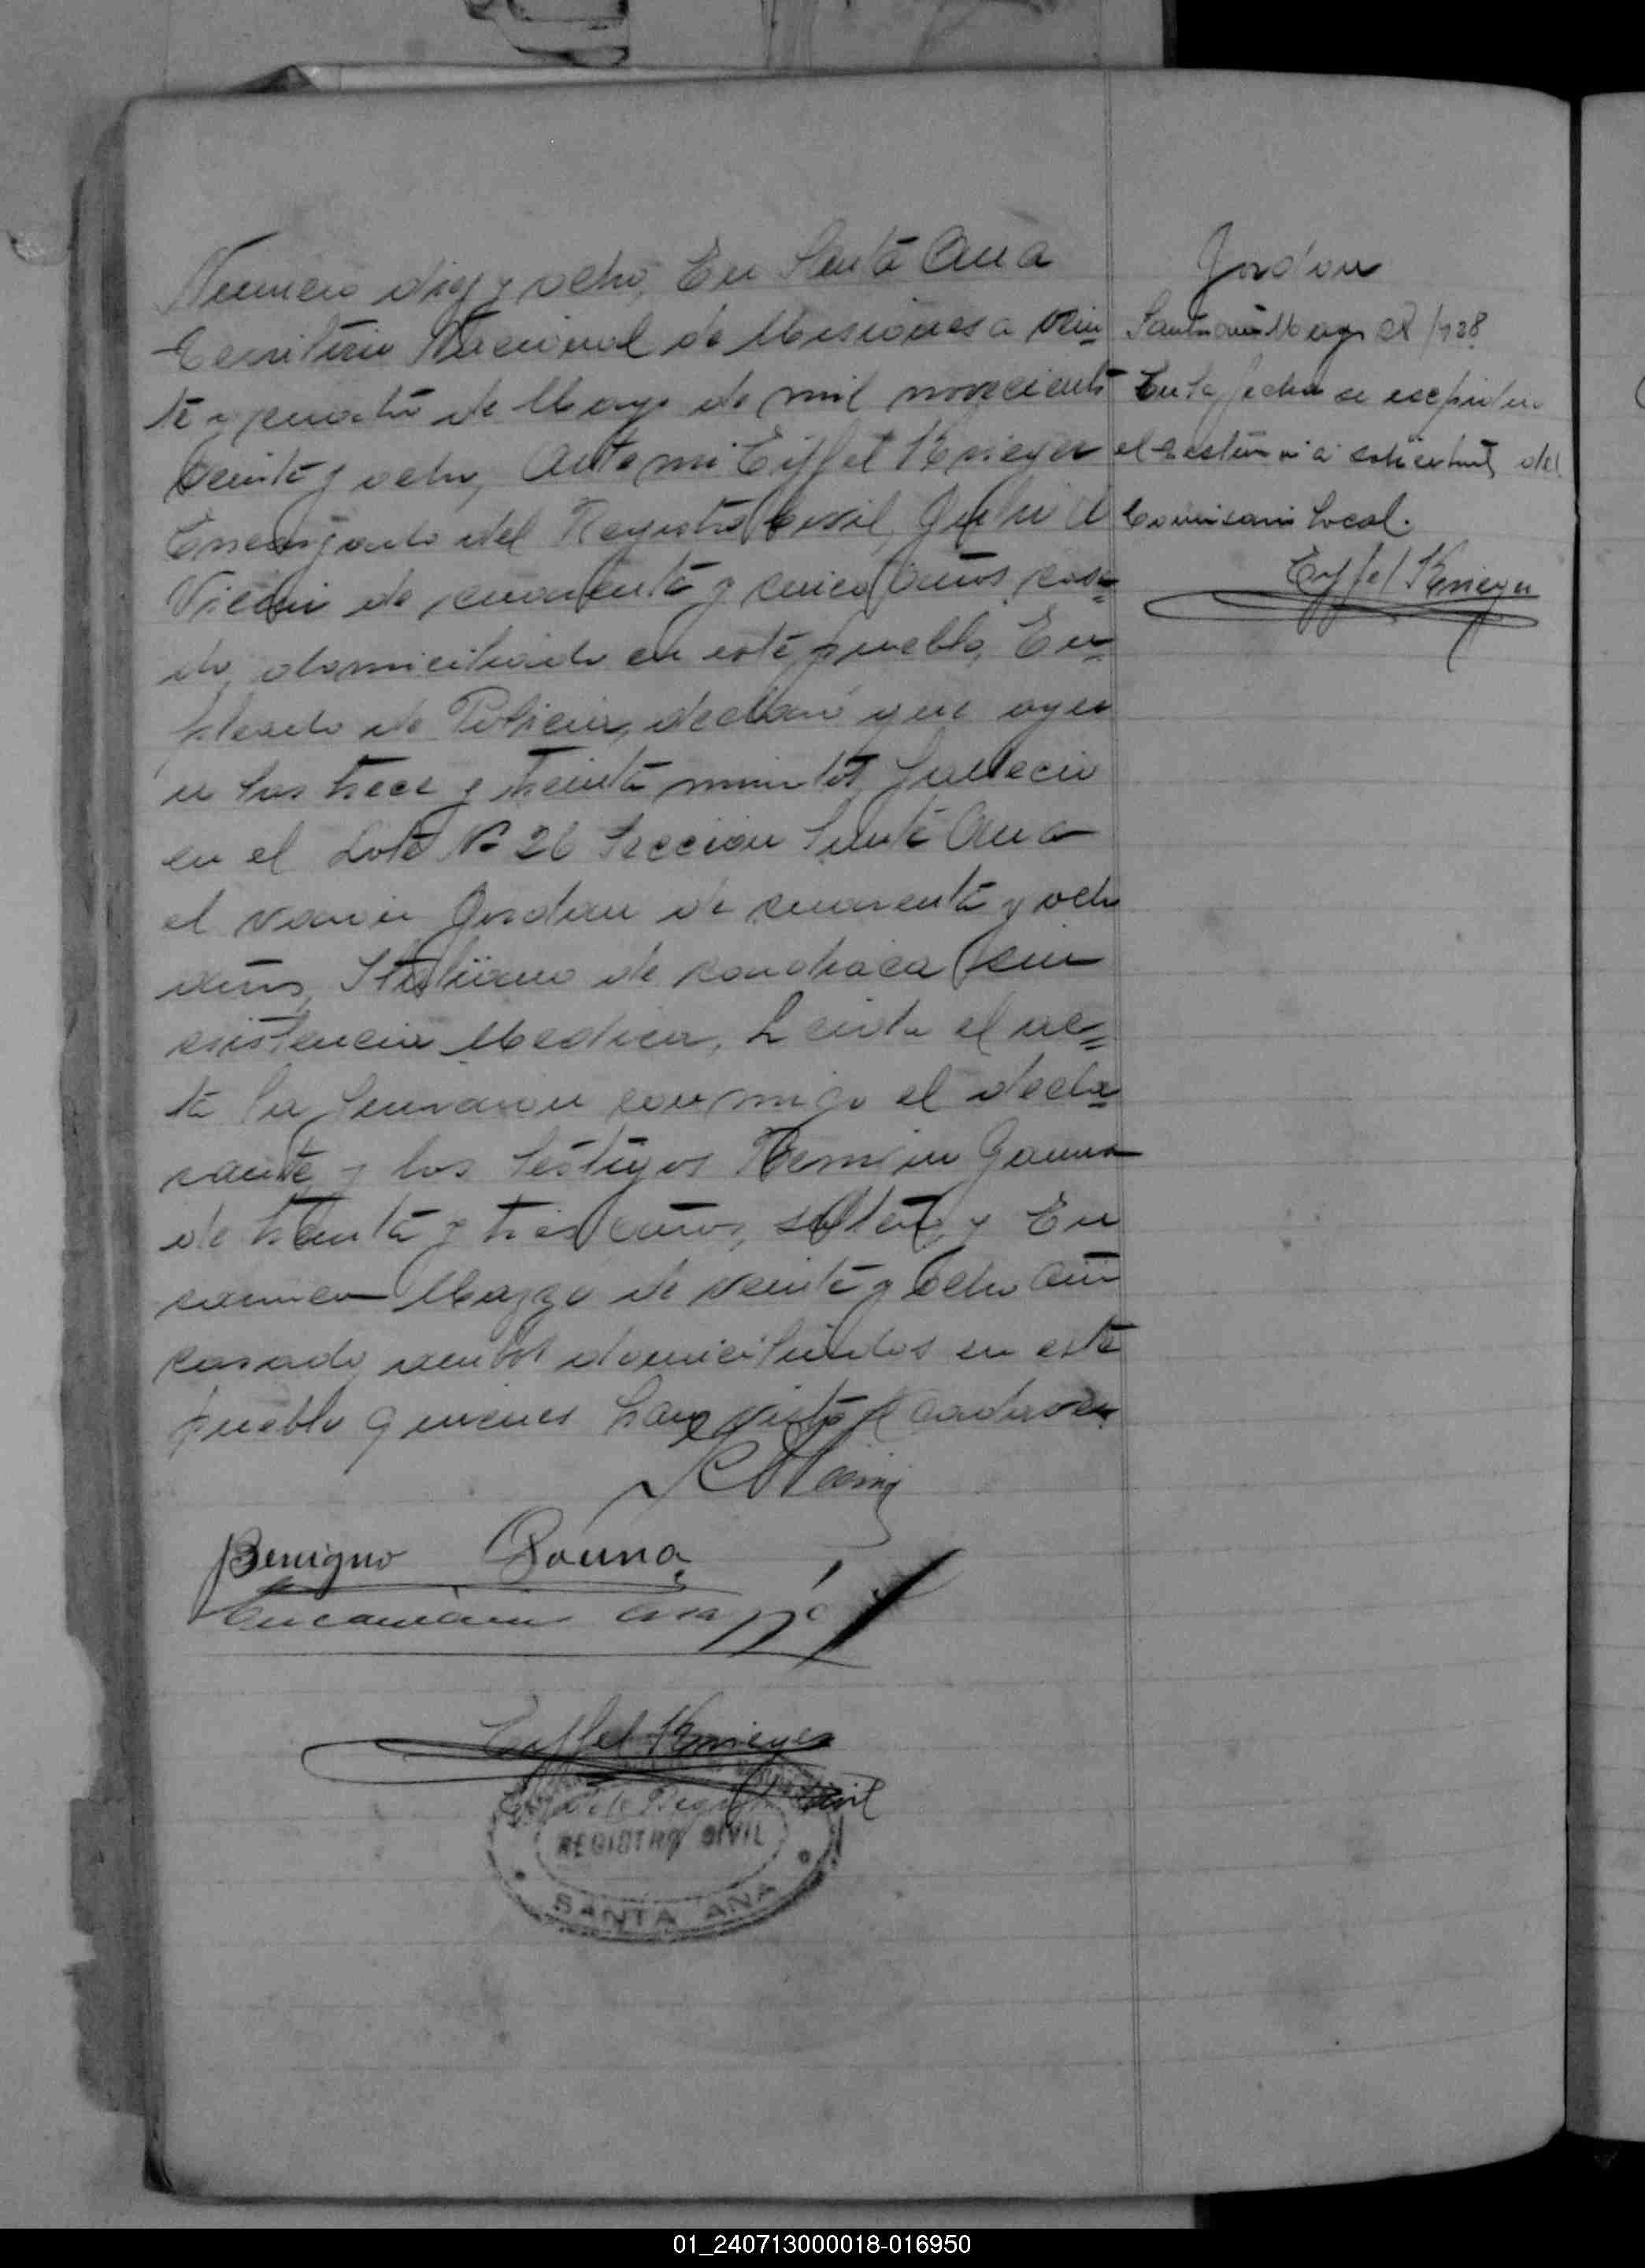 Numero diez y ocho, En Santa Ana
Territorio Nacional de Misiones a vein
te y cuatro de Mayo de mil novecientos
veinte y ocho, Ante mi Eiffel Krieger
Encargado del Registro Civil, Julio A
de cuarenta y cinco años, casa
do, domiciliado en este pueblo, Em
pleado de Policia, declaró que ayer
a las trece y treinta minutos fallecio
en el Lote Nº 26 Seccion Santa Ana
el varon Jordan de cuarenta y ocho
años, Italiano de sin
asistencia Medica, Leida el ac
ta la firmaron conmigo el decla
rante y los testigos Gauna
de treinta y tres años, soltero, y En
de veinte y ocho años
casado, ambos domiciliados en este
pueblo quienes han visto el cadaver
Benigno Gauna
Eiffel Krieger
Civil
REGISTRO CIVIL
SANTA ANA
Jordan
Santa Ana Mayo 28/928
En la fecha se
el a solicitud del
Comisario Local.
Eyffel Krieger
01_240713000018-016950